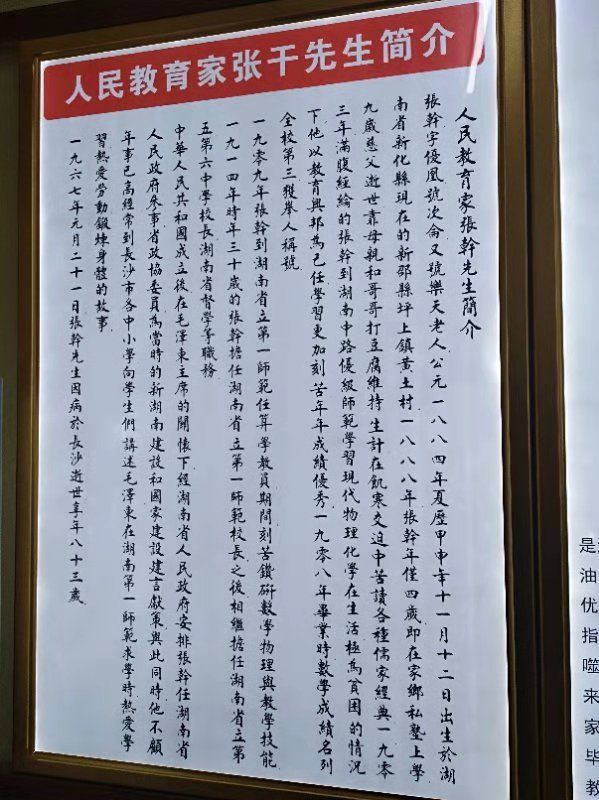 人民教育家张干先生简介
人民教育家張幹先生簡介
張幹字優凰號次侖又號樂天老人公元一八八四年夏歷甲申年十一月十二日出生於湖
南省新化縣現在的新邵縣坪上鎮黄土村一八八八年張幹年僅四歲即在家鄉私塾上學
九歲慈父逝世靠母親和哥哥打豆腐維持生計在飢寒交迫中苦讀各種儒家經典一九零
三年滿腹經綸的張幹到湖南中路優級師範學習現代物理化學在生活極為貧困的情況
下他以教育興邦為己任學習更加刻苦年年成績優秀一九零八年畢業時數學成績名列
全校第三獲舉人稱號
一九零九年張幹到湖南省立第一師範任算學教員期間刻苦鑽研數學物理與教學技能
一九一四年時年三十歲的張幹擔任湖南省立第一師範校長之後相繼擔任湖南省立第
五第六中學校長湖南省督學等職務
中華人民共和國成立後在毛澤東主席的關懷下經湖南省人民政府安排張幹任湖南省
人民政府參事省政協委員為當時的新湖南建設和國家建設建言獻策與此同時他不顧
年事已高經常到長沙市各中小學向學生們講述毛澤東在湖南第一師範求學時熱愛學
習熱愛勞動鍛煉身體的故事
一九六七年元月二十一日張幹先生因病於長沙逝世享年八十三歲
是
油
优
指
噬
来
家
毕
教